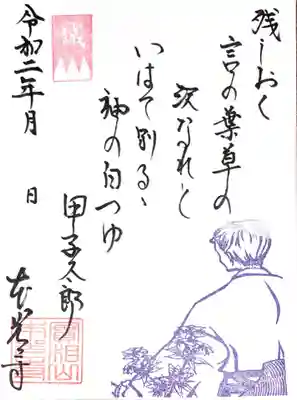 残しおく
言の葉草の
沢なれと
いはて別るゝ
袖の白つゆ
甲子太郎
本光寺
誠
令和二年 月 日